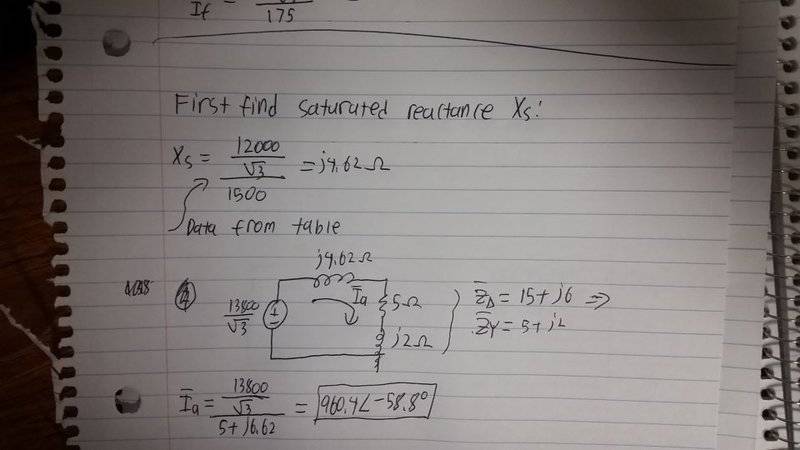 If = 175
First find saturated reactance Xs:
Xs = (12000/√3)/1500 = j4.62Ω
Data from table
j4.62Ω
13800/√3
Ia
5Ω
j2Ω
Z̄Δ = 15+j6 ⇒
Z̄Y = 5+j2
Īa = (13800/√3)/(5+j6.62) = 960.4∠-58.8°